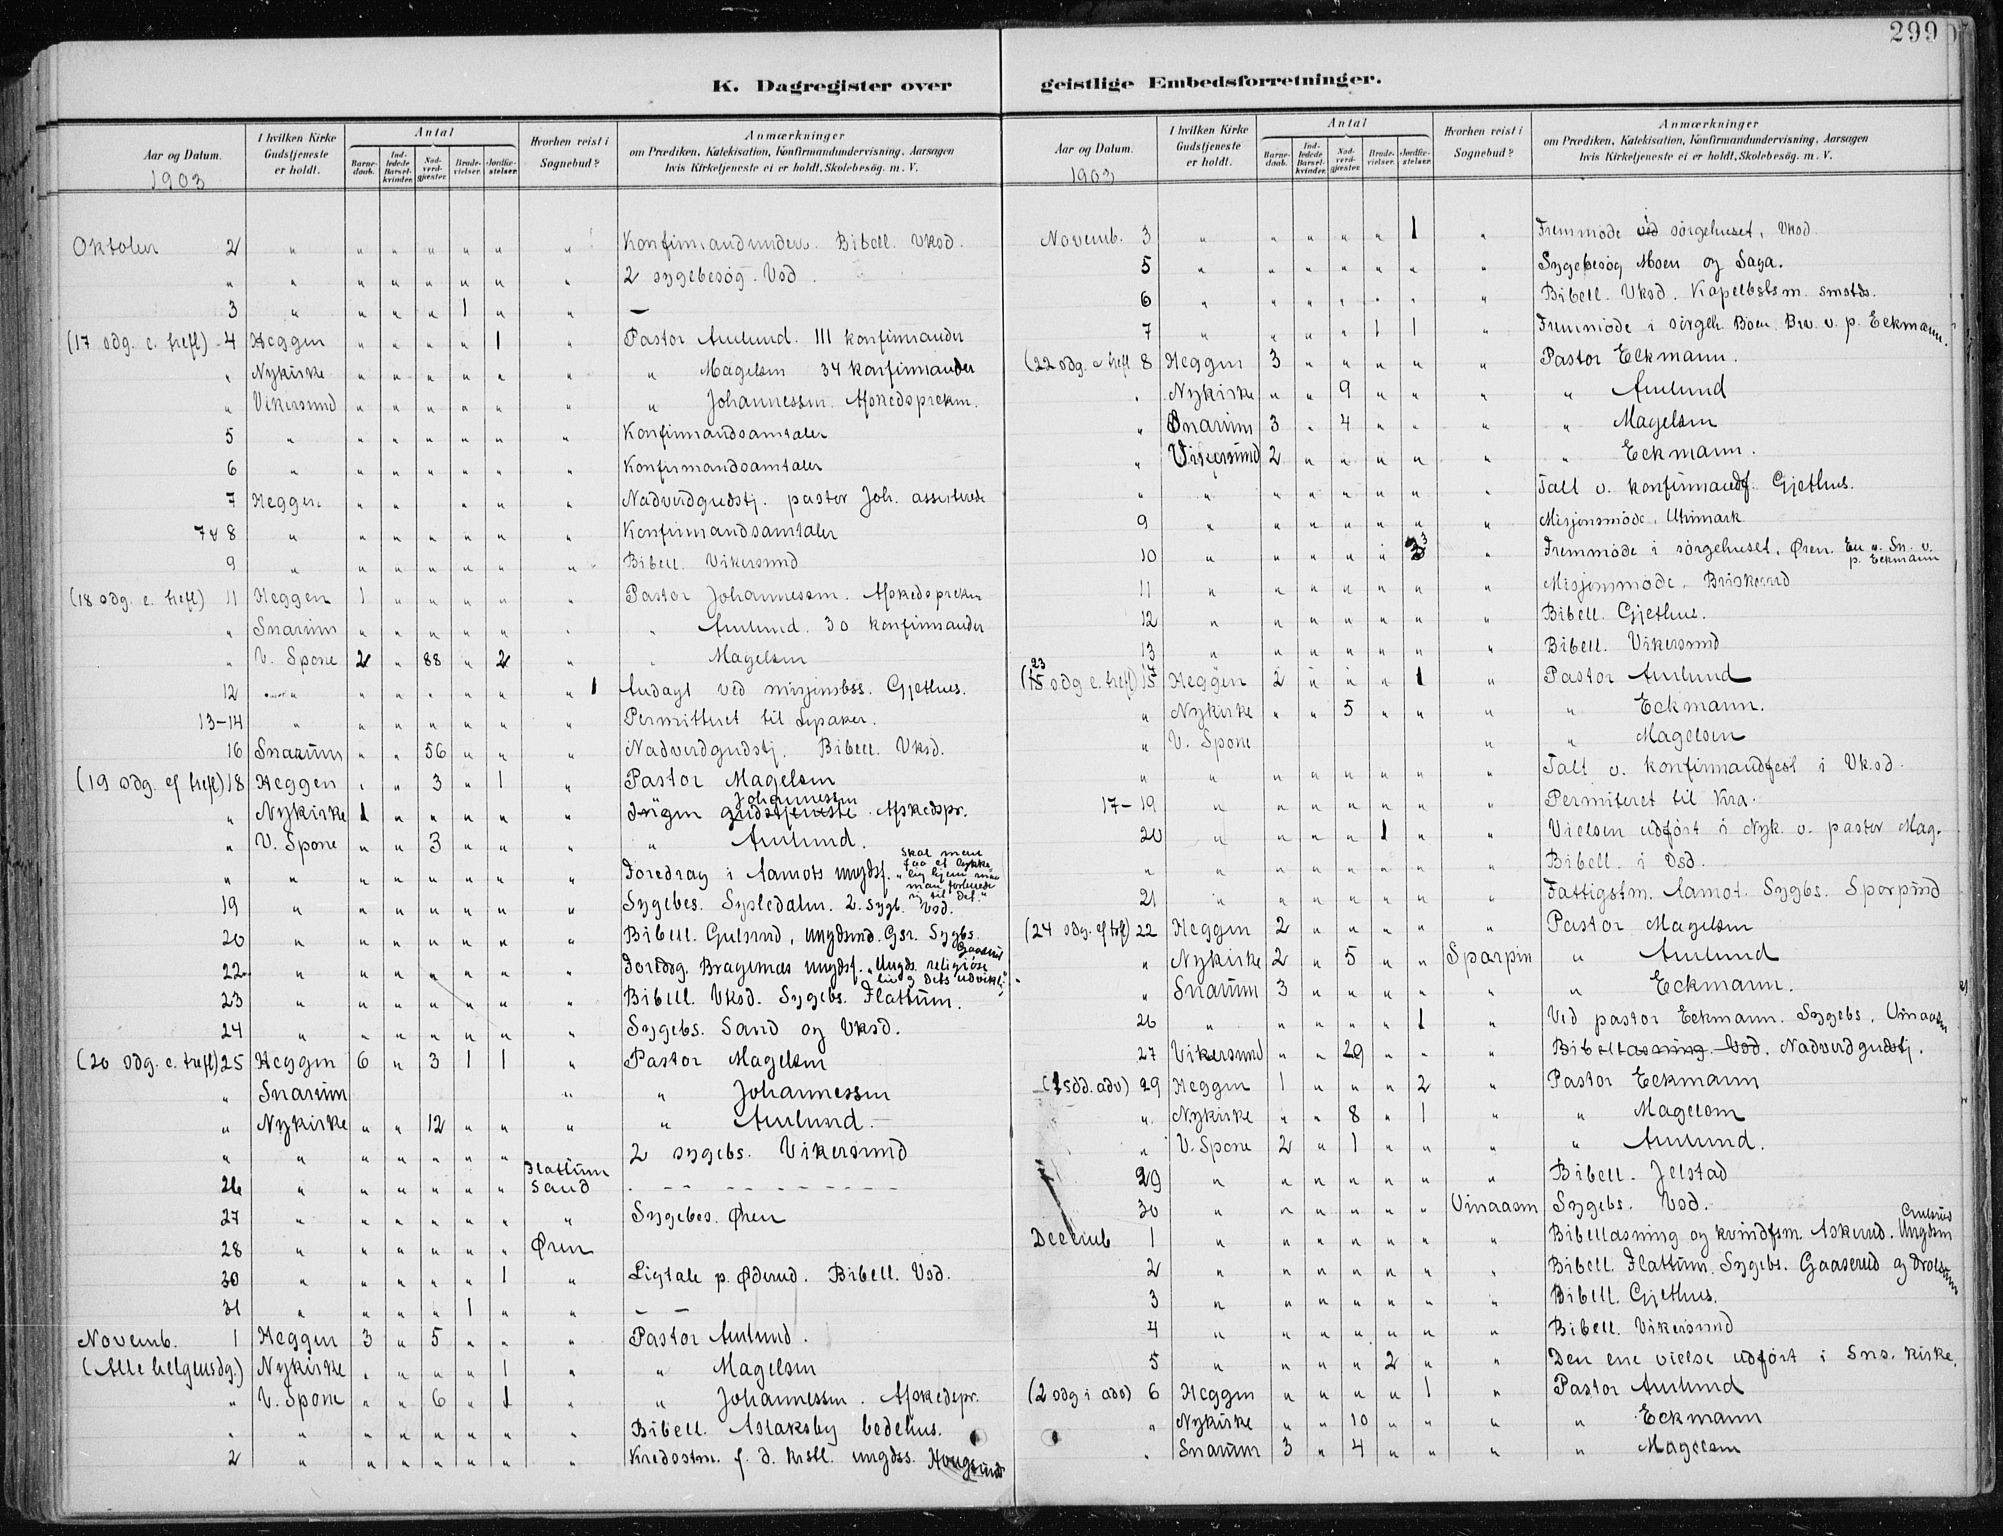 299
K. Dagregister over geistlige Embedsforretninger.
Aar og Datum. I hvilken Kirke Gudstjeneste er holdt. Antal Barnedaab. Indledede Barselkvinder. Nadverdgjester. Brudevielser. Jordfæstelser. Hvorhen reist i Sognebud? Anmærkninger om Prædiken, Katekisation, Konfirmandundervisning, Aarsagen hvis Kirketjeneste ei er holdt, Skolebesøg. m. V.
1903
Oktober 2 " " " " " " " Konfirmandunderv. Bibell. Vksd.
" " " " " " " " 2 sygebesøg. Vsd.
3 " " " " 1 " " —
(17 sdg. e. trefl) 4 Heggen " " " " 1 " Pastor Amlund. 111 konfirmander
" Nykirke " " " " " " " Magelsen 34 konfirmander
" Vikersund " " " " " " " Johannessen. Afskedspreken.
5 " " " " " " " Konfirmandsamtaler
6 " " " " " " " Konfirmandsamtaler
7 Heggen " " " " " Nadverdgudstj. pastor Joh. assisterede
7 & 8 " " " " " " " Konfirmandsamtaler
9 " " " " " " " Bibell. Vikersund
(18 sdg. e. trefl) 11 Heggen 1 " " " " " Pastor Johannessen. Afskedspreken
" Snarum " " " " " " " Amlund. 30 konfirmander
" V. Spone 2 " 88 " 2 " " Magelsen
12 " " " " " " " 1 Andagt ved misjonsbss. Gjethus.
13-14 " " " " " " " Permitteret til Lysaker.
16 Snarum " " 56 " " " Nadverdgudstj. Bibell. Vksd.
(19 sdg. ef trefl) 18 Heggen " " 3 " 1 " Pastor Magelsen
" Nykirke 1 " " " " " Ingen gudstjeneste Johannessen Afskedspr.
" V. Spone " " 3 " " " " Amlund.
" " " " " " " " Foredrag i Aamots ungdsf. "Skal men faa et lykkelig hjem maa man forberede sig til det."
19 " " " " " " " Sygebes. Sysledalen. 2 sygb. Vsd.
20 " " " " " " " Bibell. Gulsrud, ungdsmd. Gsr. Sygbs. Gaaserud
22 " " " " " " " Foredrg. Bragernæs ungdsf. "Ungds. religiøse liv og dets udvikl."
23 " " " " " " " Bibell. Vksd. Sygebs. Flattum.
24 " " " " " " " Sygebs. Sand og Vksd.
(20 sdg. e. trefl) 25 Heggen 6 " 3 1 1 " Pastor Magelsen
" Snarum " " Johannessen
" Nykirke " " 12 " " " " Amlund.
" " " " " " " 2 sygebs. Vikersund
26 " " " " " " Flattum Sand
27 " " " " " " " Sygebes. Øren
28 " " " " " " Øren
30 " " " " " 1 " Ligtale p. Øderud. Bibell. Vsd.
31 " " " " 1 " " — —
Novemb. 1 Heggen 3 " 5 " " " Pastor Amlund.
(Alle helgensdg.) Nykirke " " " " 1 " " Magelsen
" V. Spone " " 6 " 1 " " Johannessen. Afskedspr.
" " " " " " " " Bibell. Aslaksby bedehus.
2 " " " " " " " Kredsstm. f. d. krstl. ungdss. Hougsund
Aar og Datum. I hvilken Kirke Gudstjeneste er holdt. Antal Barnedaab. Indledede Barselkvinder. Nadverdgjester. Brudevielser. Jordfæstelser. Hvorhen reist i Sognebud? Anmærkninger om Prædiken, Katekisation, Konfirmandundervisning, Aarsagen hvis Kirketjeneste ei er holdt, Skolebesøg. m. V.
1903
Novemb. 3 " " " " " 1 " Fremmøde ved sørgehuset, Vksd.
5 " " " " " " " Sygebesøg Moen og Saga.
6 " " " " " " " Bibell. Vksd. Kapelbstsm. smstds.
7 " " " 1 1 " Fremmøde i sørgeh. Boen. Brv. v. p. Eckmann.
(22 sdg. e trefl 8 Heggen 3 " " " " " Pastor Eckmann.
" Nykirke " " 9 " " " " Amlund
" Snarum 3 " 4 " " " " Magelsen
" Vikersund 2 " " " " " " Eckmann.
" " " " " " " " Talt v. konfirmandf. Gjethus.
9 " " " " " " " Misjonsmøde. Uhimark
10 " " " " " 3 " Fremmøde i sørgehuset, Øren. En v. Sn. v. p. Eckmann
11 " " " " " " " Misjonmøde. Briskerud
12 " " " " " " " Bibell. Gjethus.
13 " " " " " " " Bibell. Vikersund
(23 sdg e. trefl) 15 Heggen 2 " " " 1 " Pastor Amlund
" Nykirke " " 5 " " " " Eckmann.
" V. Spone " " Magelsen
" " " " " " " " Talt v. konfirmandfest i Vksd.
17-19 " " " " " " " Permiteret til Kra.
20 " " " " 1 " " Vielsen udført i Nyk. v. pastor Mag.
" " " " " " " " Bibell. i Vsd.
21 " " " " " " " Fattigstm. Aamot. Sygbs. Sporpind
(24 sdg. ef tref) 22 Heggen 2 " " " " " Pastor Magelsen
" Nykirke 2 " 5 " " Sparpin " Amlund
" Snarum 3 " " " " " " Eckmann.
26 " " " " " 1 " Ved pastor Eckmann. Sygebs. Vinaasen
27 Vikersund " " 29 " " " Bibellæsning. Vsd. Nadverdgudstj.
(1 sdd. adv) 29 Heggen 1 " " " 2 " Pastor Eckmann
" Nykirke " " 8 " 1 " " Magelsen
" V. Spone 2 " 1 " " " " Amlund.
29 " " " " " " " Bibell. Jelstad
30 " " " " " " Vinaasen Sygebs. Vsd.
Decemb 1 " " " " " " " Bibellæsning og kvindfsm. Askerud. Ungdsm Gulsrud
2 " " " " " " " Bibell. Flattum. Sygebs. Gaaserud og Drolsum
3 " " " " " " " Bibell. Gjethus.
4 " " " " " " " Bibell. Vikersund
5 " " " " 2 " " Den ene vielse udført i Sns. kirke.
(2 sdg i adv) 6 Heggen " " " " 1 " Pastor Amlund
" Nykirke " " 10 " " " " Eckmann
" Snarum 3 " 4 " " " " Magelsen